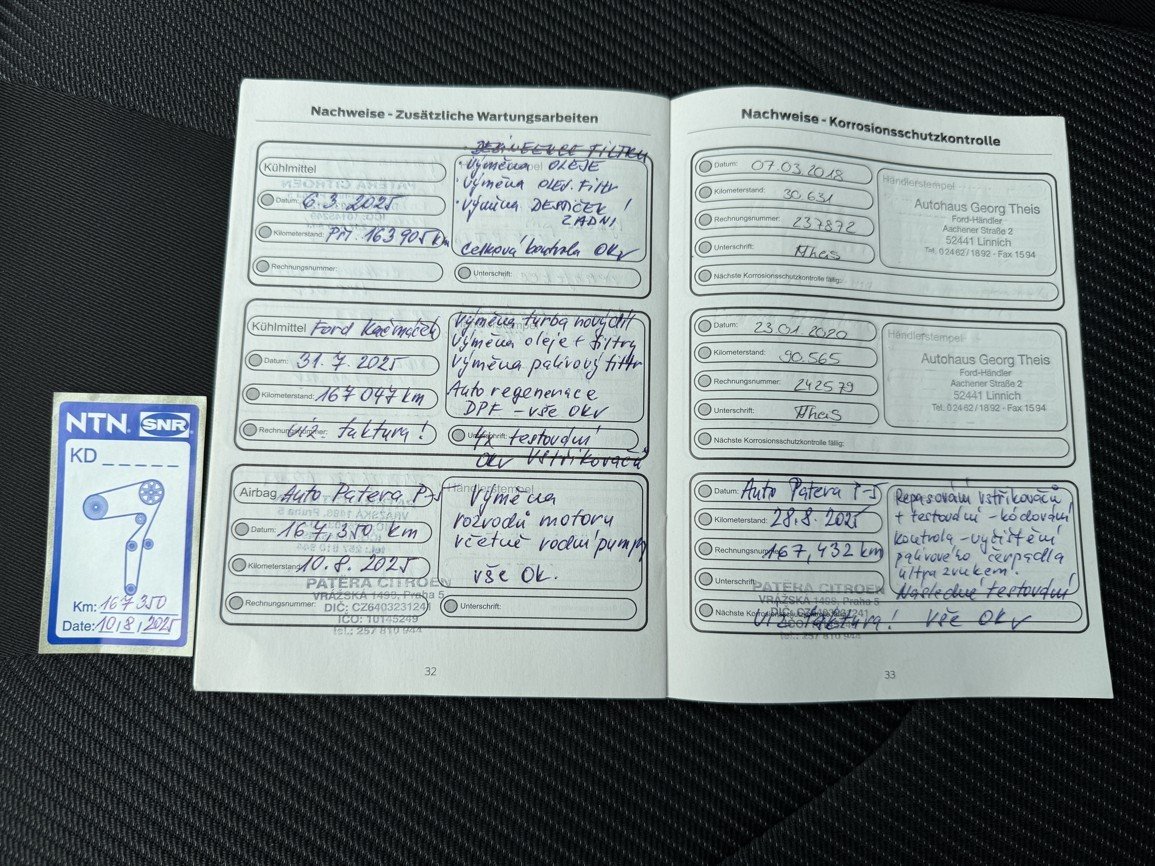 Nachweise - Zusätzliche Wartungsarbeiten
Kühlmittel
Datum: 6.3. 2025
Kilometerstand: 163 905 km
Rechnungsnummer:
výměna OLEJE
výměna OLEJ. Filtr
výměna DESTIČEK !
ZADNÍ
celková kontrola OK
Unterschrift:
Kühlmittel Ford
Datum: 31.7. 2025
Kilometerstand: 167 047 km
Rechnungsnummer: viz. faktura!
výměna turba nový díl
výměna oleje + filtry
výměna palivový filtr
Auto regenerace
DPF - vše OK
4x testování
vstřikovačů
Airbag Auto Patera P-5
Datum: 167,350 km
Kilometerstand: 10.8. 2025
Rechnungsnummer:
Händlerstempel
výměna
rozvodů motoru
včetně vodní pumpy
vše Ok.
Unterschrift:
PATERA CITROEN
VRÁŽSKÁ 1499, Praha 5
DIČ: CZ6403231241
IČO: 10145249
tel.: 257 810 944
32
Nachweise - Korrosionsschutzkontrolle
Datum: 07.03.2018
Kilometerstand: 30.631
Rechnungsnummer: 237872
Unterschrift: Theis
Nächste Korrosionsschutzkontrolle fällig:
Händlerstempel
Autohaus Georg Theis
Ford-Händler
Aachener Straße 2
52441 Linnich
Tel. 02462/1892 · Fax 1594
Datum: 23.01.2020
Kilometerstand: 90.565
Rechnungsnummer: 242579
Unterschrift: Theis
Nächste Korrosionsschutzkontrolle fällig:
Händlerstempel
Autohaus Georg Theis
Ford-Händler
Aachener Straße 2
52441 Linnich
Tel. 02462/1892 · Fax 1594
Datum: Auto Patera P-5
Kilometerstand: 28.8. 2025
Rechnungsnummer: 167,432 km
Unterschrift:
Repasování vstřikovačů
+ testování - kódování
kontrola - vyčištění
palivového čerpadla
ultrazvukem.
Následné testování!
viz faktura! vše OK
PATERA CITROEN
VRÁŽSKÁ 1499, Praha 5
tel.: 257 810 944
33
NTN. SNR
KD _ _ _ _ _
Km: 167350
Date: 10,8,2025